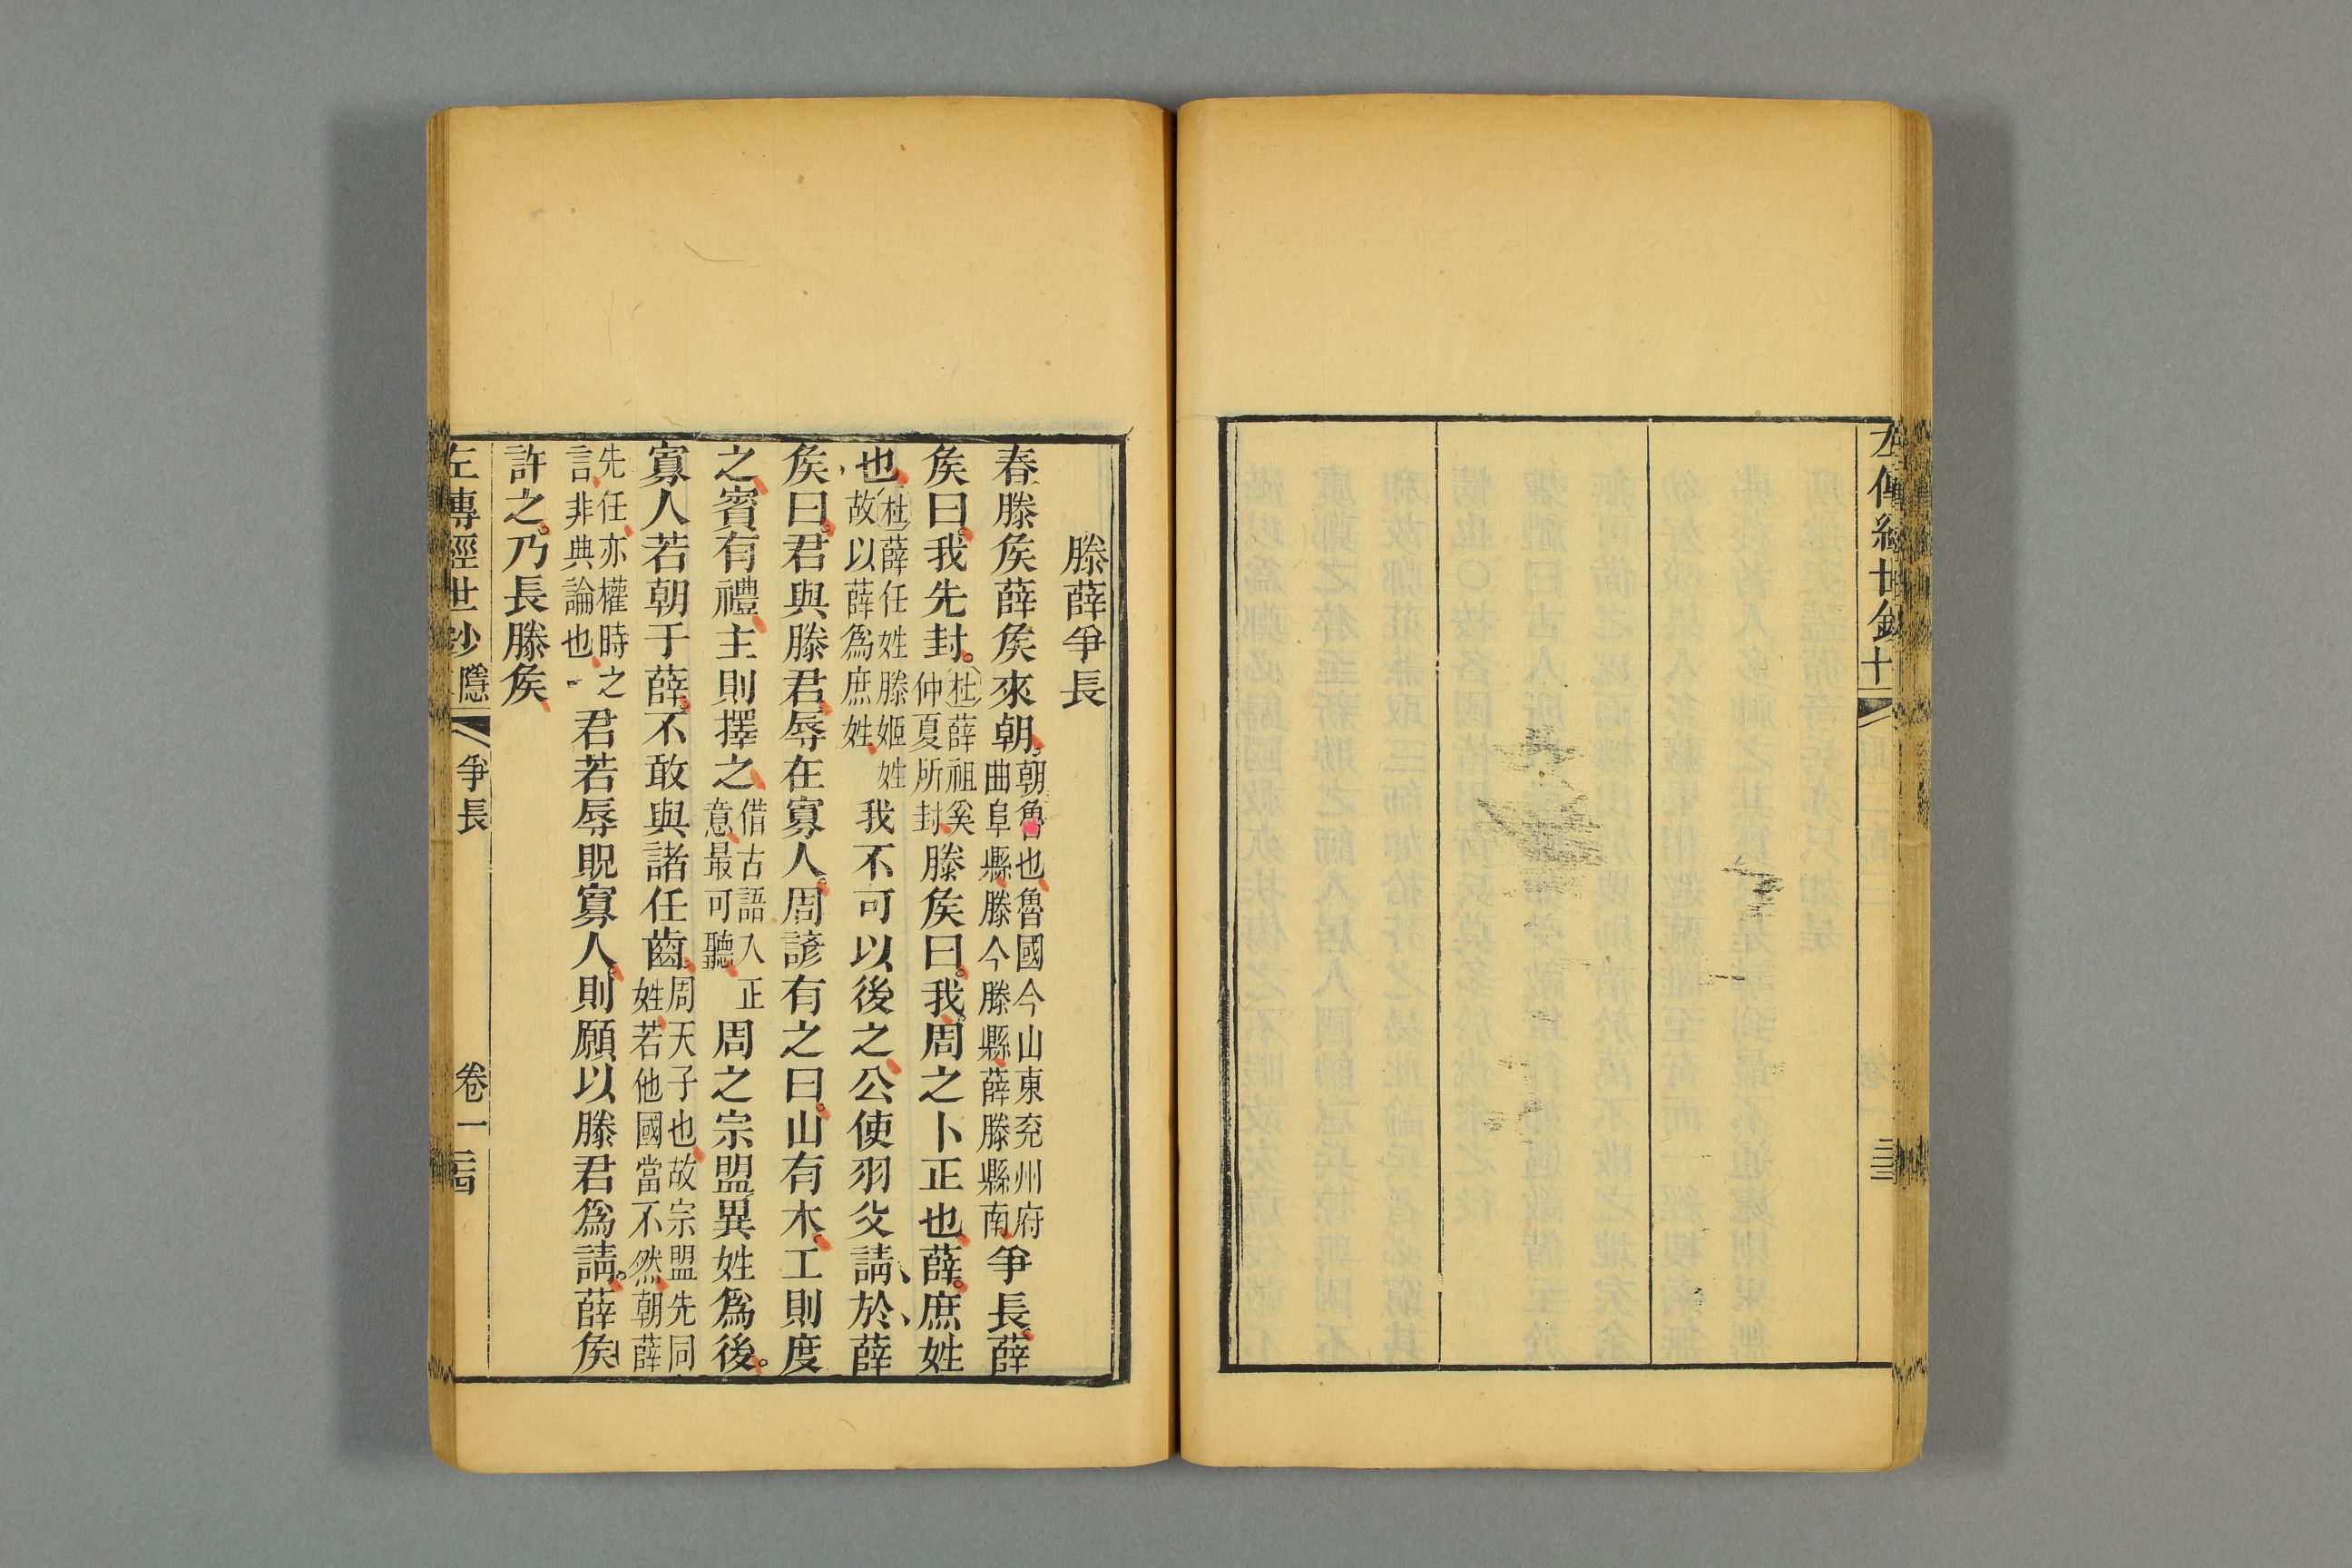 滕薛爭長
春滕矦薛矦來朝朝魯也魯國今山東兖州府曲阜縣滕今滕縣薛滕縣南爭長薛
矦曰我先封杜薛祖奚仲夏所封滕矦曰我周之卜正也薛庶姓
也杜薛任姓滕姬姓故以薛爲庶姓我不可以後之公使羽父請於薛
矦曰君與滕君辱在寡人周諺有之曰山有木工則度
之賓有禮主則擇之借古語入正意最可聽周之宗盟異姓爲後
寡人若朝于薛不敢與諸任齒周天子也故宗盟先同姓若他國當不然朝薛
先任亦權時之言非典論也君若辱貺寡人則願以滕君爲請薛矦
許之乃長滕矦
左傳經世鈔 隱 爭長 卷一